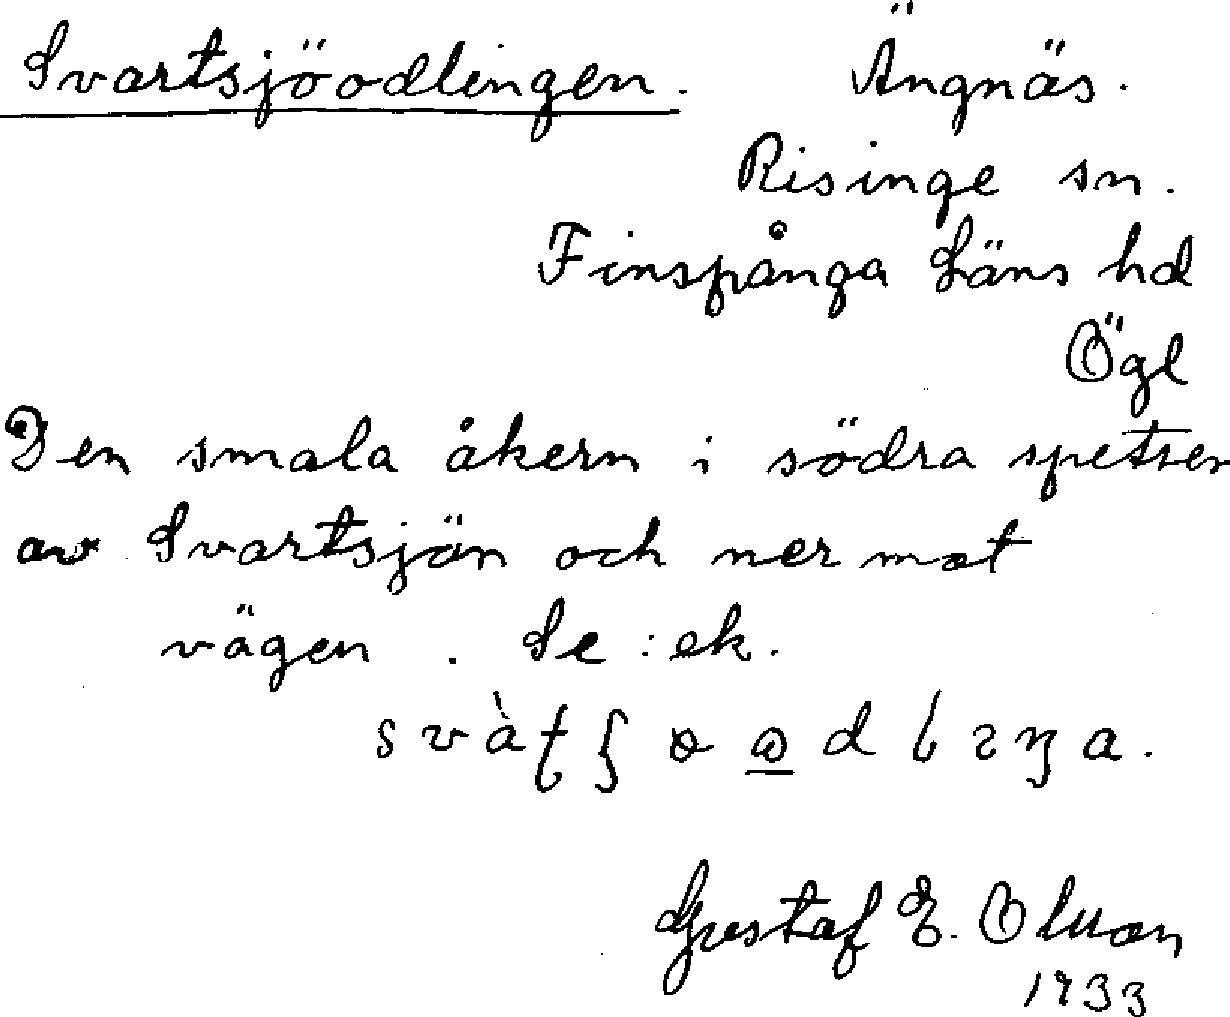 Svartsjöodlingen. Ängnäs.
Risinge sn.
Finspånga Läns hd
Ögl
Den smala åkern i södra spetsen
av Svartsjön och ner mot
vägen. Se: ek.
Gustaf E. Olsson
1933